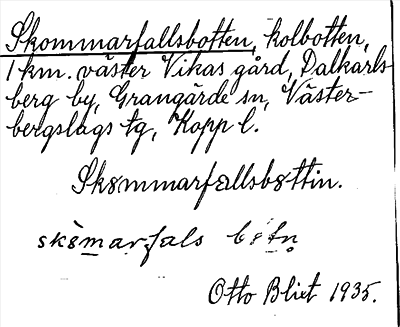 Skommarfallsbotten, kolbotten,
1 km. väster Vikas gård, Dalkarls-
berg by, Grangärde sn, Väster-
bergslags tg, Kopp l.
Skommarfallsbottin.
Otto Blixt 1935.